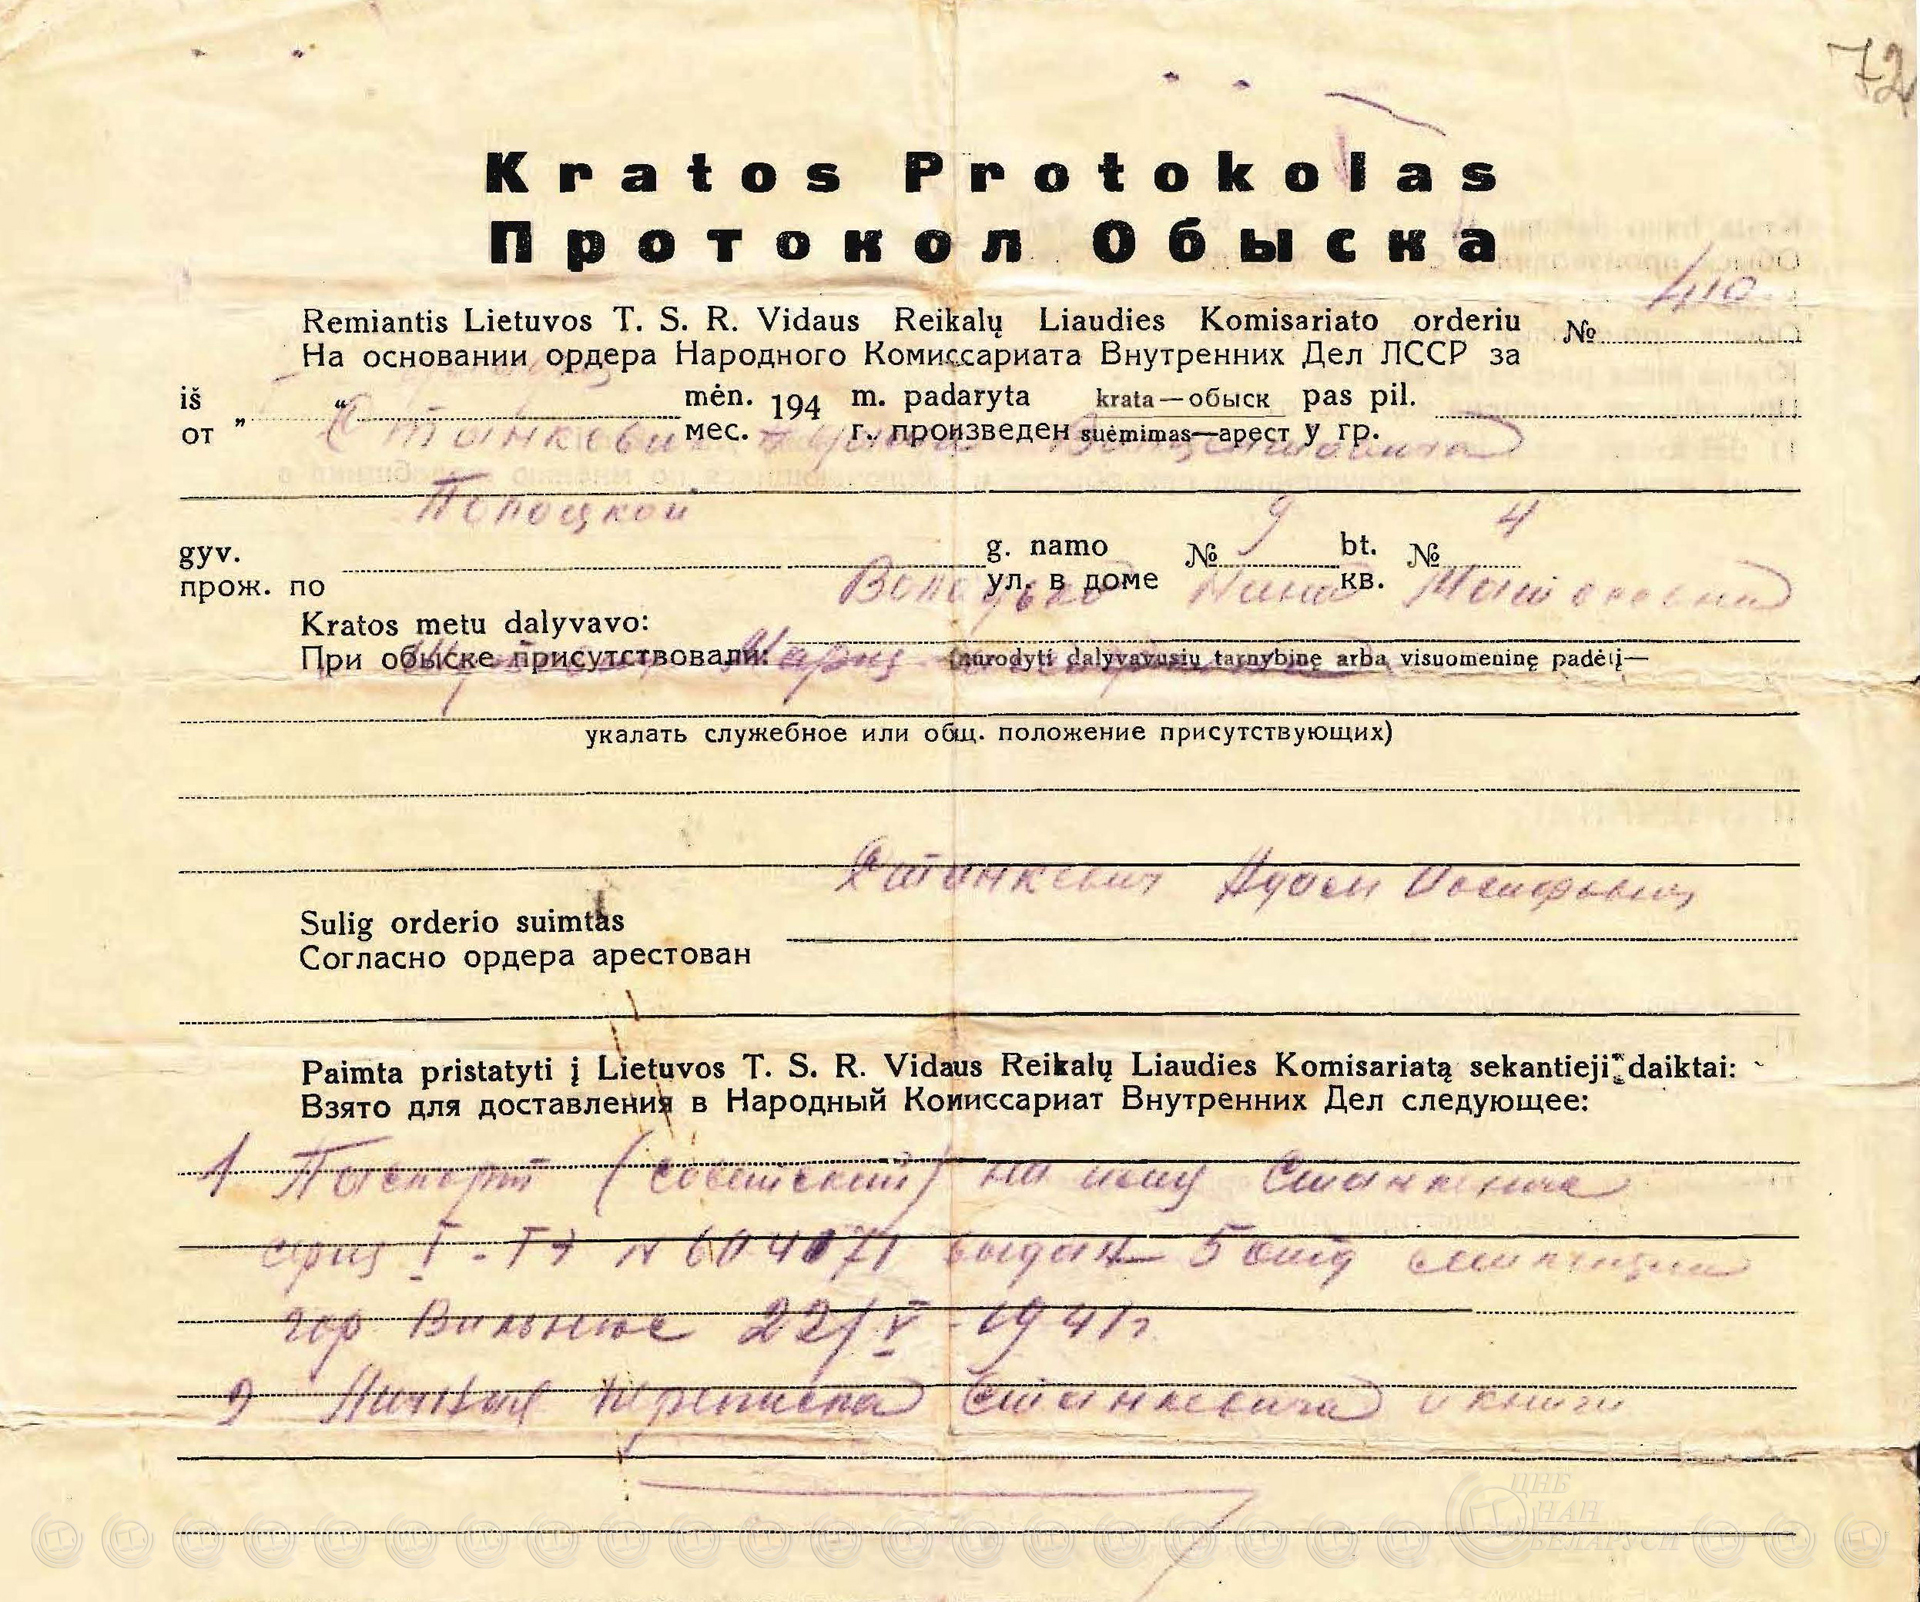 72
Kratos Protokolas
Протокол Обыска
410
Remiantis Lietuvos T. S. R. Vidaus Reikalų Liaudies Komisariato orderiu №
На основании ордера Народного Комиссариата Внутренних Дел ЛССР за
iš „ “ mėn. 194 m. padaryta krata—обыск pas pil.
от мес. г. произведен suėmimas—арест у гр.
Станкевич
Полоцкой 9 4
gyv. g. namo № bt. №
прож. по ул. в доме кв.
Володько Нина
Kratos metu dalyvavo:
При обыске присутствовали: (nurodyti dalyvavusių tarnybinę arba visuomeninę padėtį—
Мария
укалать служебное или общ. положение присутствующих)
Станкевич Адам Иосифович
Sulig orderio suimtas
Согласно ордера арестован
Paimta pristatyti į Lietuvos T. S. R. Vidaus Reikalų Liaudies Komisariatą sekantieji daiktai:
Взято для доставления в Народный Комиссариат Внутренних Дел следующее:
1 Паспорт (советский) на имя Станкевича
серия I - ТЭ N 604071 выдан 5 отд милиции
гор Вильнюс 22/V-1941г.
2 Личная переписка Станкевича и книги
ЦНБ
НАН
БЕЛАРУСИ